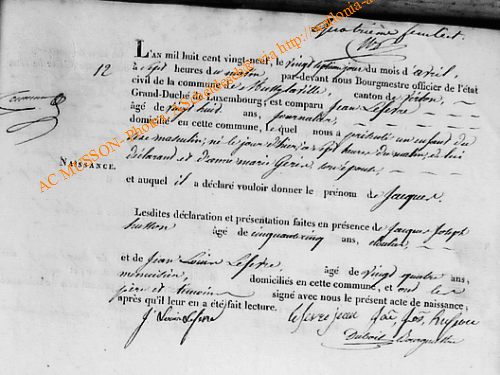 Quatrième feuillet
12
L'an mil huit cent vingt neuf, le vingt septième jour du mois d'avril,
à sept heures du matin par-devant nous Bourgmestre officier de l'état
civil de la commune de canton de Virton,
Grand-Duché de Luxembourg, est comparu Jean Lefevre
âgé de vingt huit ans, journalier,
domicilié en cette commune, lequel nous a présenté un enfant du
sexe masculin, né le jour d'hier, à sept heures du matin, de lui
déclarant et d'anne marie son épouse,
Naissance.
et auquel il a déclaré vouloir donner le prénom de Jacques.
Lesdites déclaration et présentation faites en présence de Jacques Joseph
husson âgé de cinquante cinq ans,
et de Jean Louis Lefevre, âgé de vingt quatre ans,
menuisier, domiciliés en cette commune, et ont les
père et témoins signé avec nous le présent acte de naissance,
après qu'il leur en a été fait lecture.
J Louis Lefevre
lefevre jean
AC MUSSON- Photo